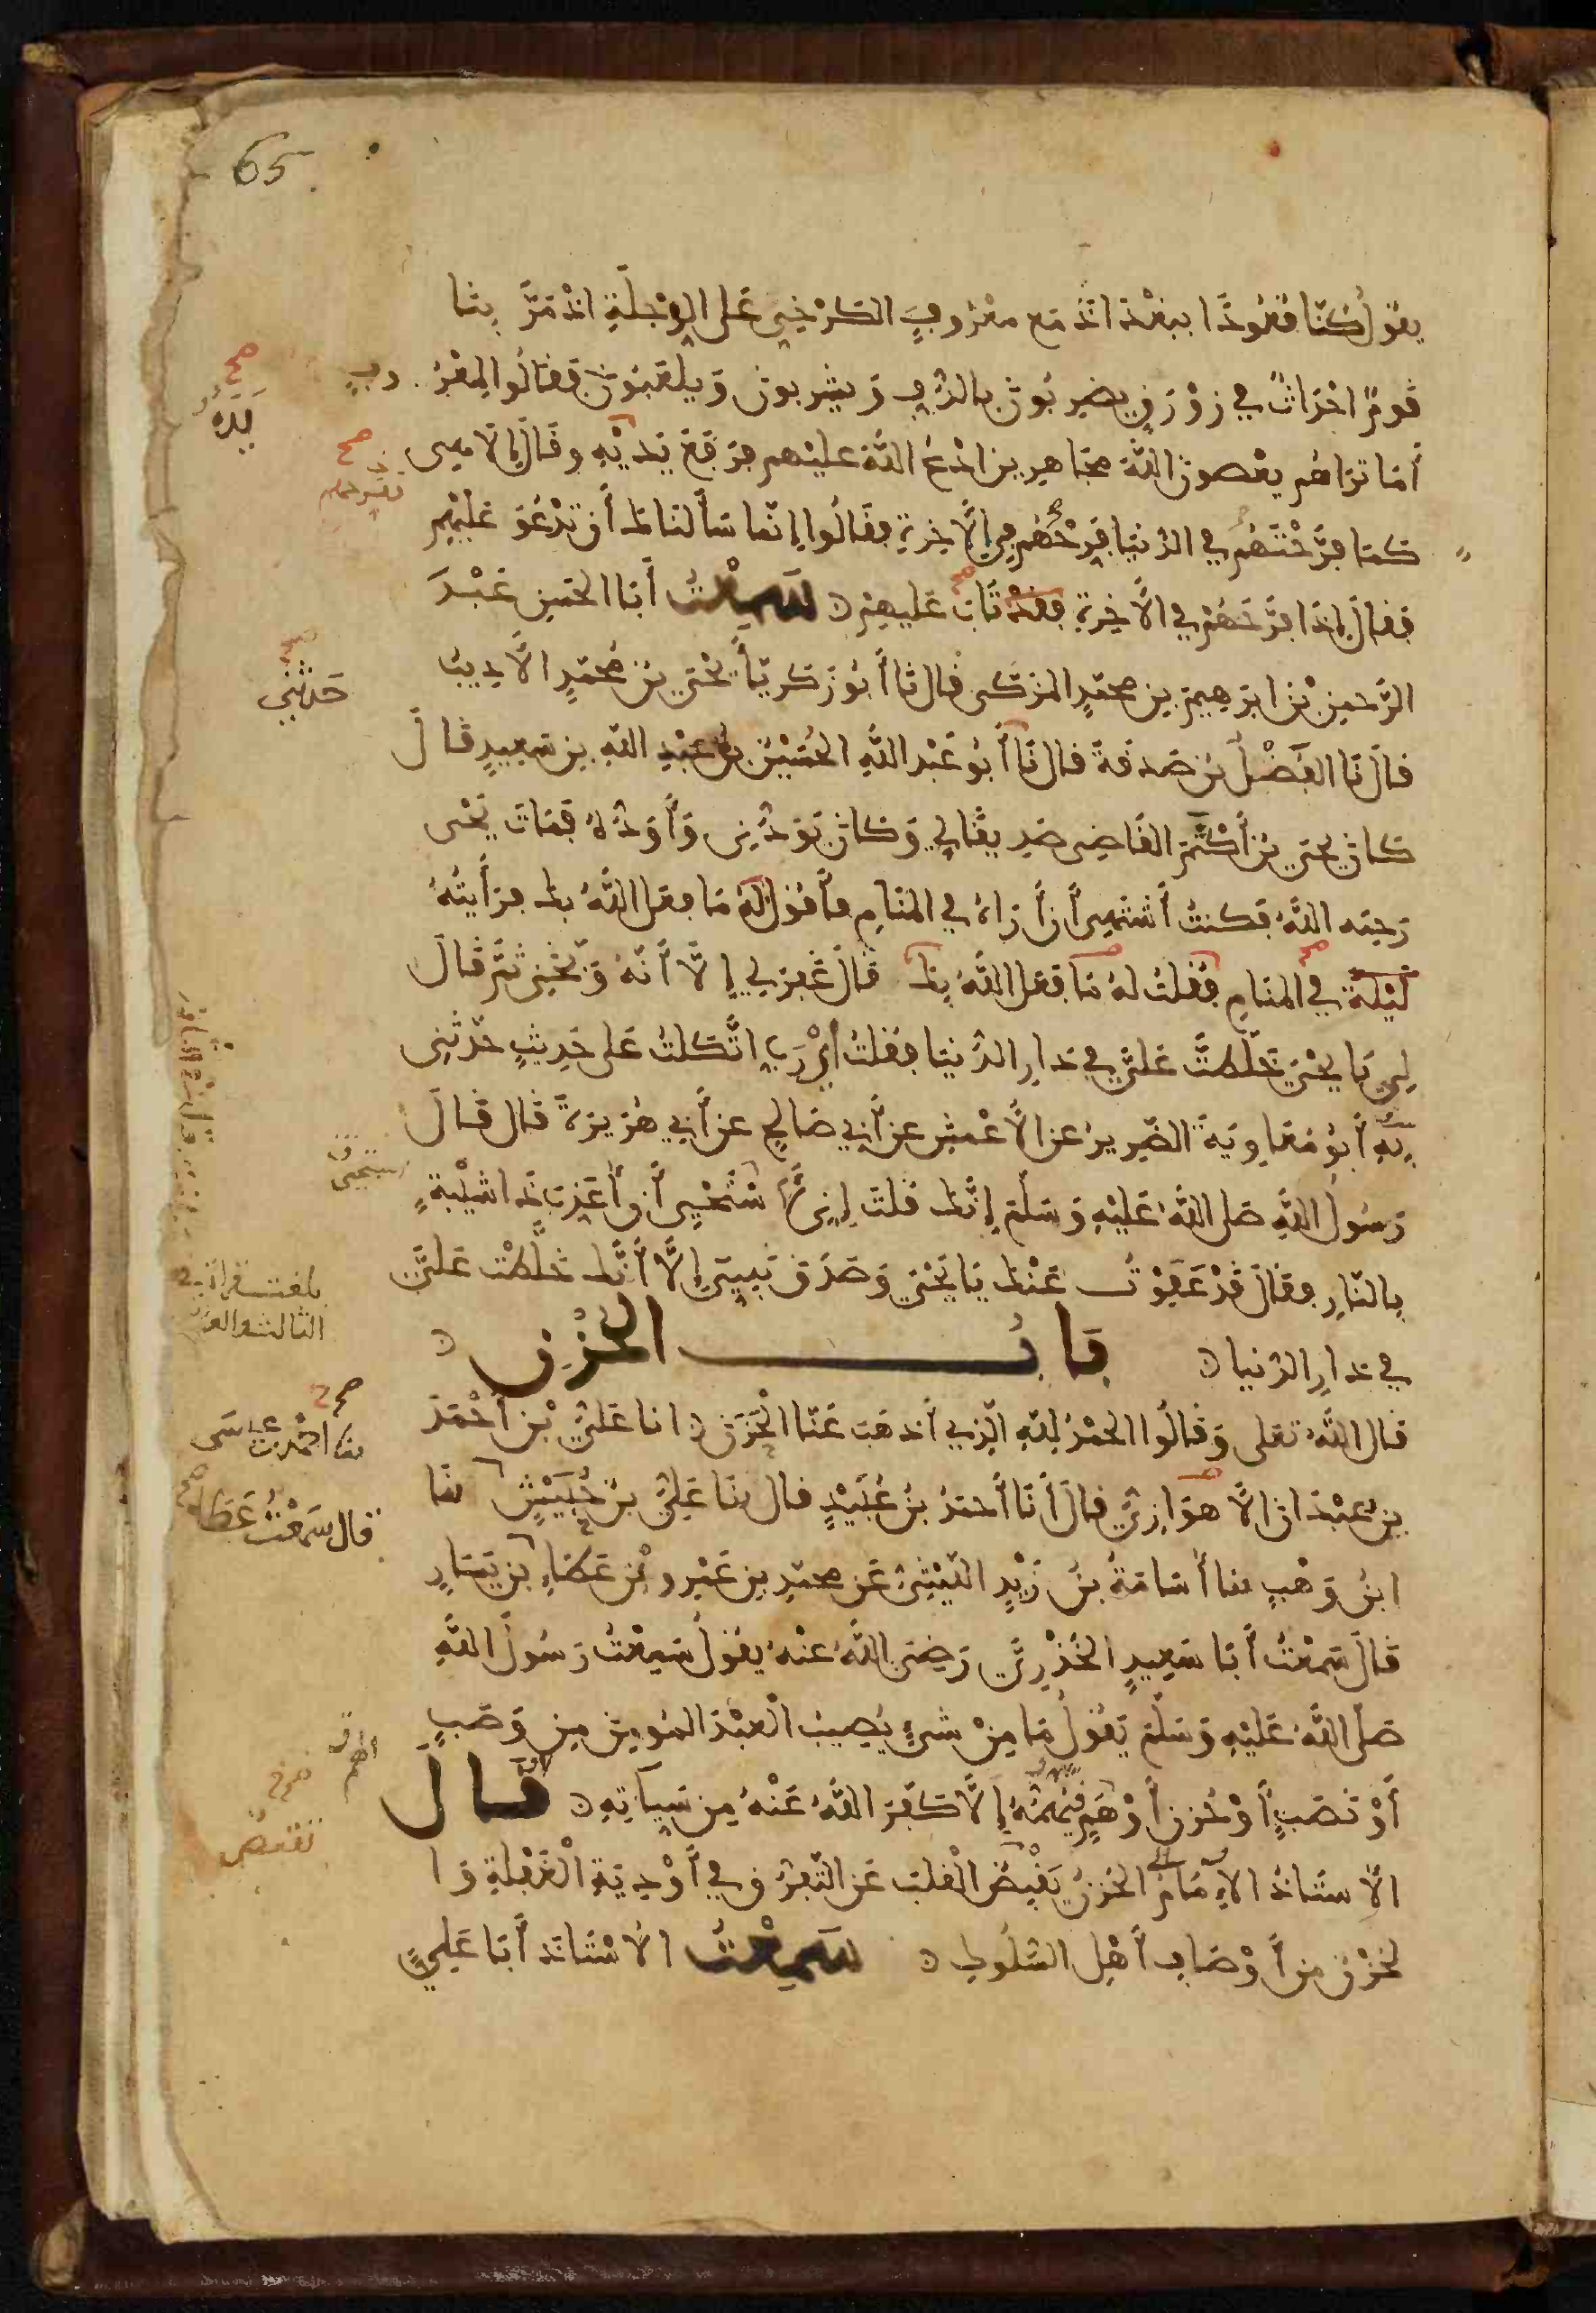 65
يقول كنا قعودا ببغداذ مع معروف الكرخي على الدجلة اذ مر بنا
قوم احداث في زورق يضربون بالدف ويشربون ويلعبون فقالوا لمعروف
أما تراهم يعصون الله مجاهرين ادع الله عليهم فرفع يديه وقال إلاهي
كما فرحتهم في الدنيا فرحهم في الآخرة فقالوا إنما سألناك أن تدعو عليهم
فقال إذا فرحهم في الآخرة فقد تاب عليهم سمعت أبا الحسن عبد
الرحمن بن ابرهيم بن محمد المزكى قال نا أبو زكريا يحيى بن محمد الأديب
قال نا الفضل بن صدقة قال نا أبو عبد الله الحسين بن عبد الله بن سعيد قال
كان يحيى بن أكثم القاضي صديقا لي وكان يودني وأوده فمات يحيى
رحمه الله فكنت أشتهي أن أراه في المنام فأقول له ما فعل الله بك فرأيته
ليلة في المنام فقلت له ما فعل الله بك قال غفر لي إلا أنه وبخني ثم قال
لي يا يحيى خلطت علي في دار الدنيا فقلت أي رب اتكلت على حديث حدثني
به أبو معاوية الضرير عن الأعمش عن أبي صالح عن أبي هريرة قال قال
رسول الله صلى الله عليه وسلم إنك قلت إني لأستحيي أن أعذب ذا شيبة
بالنار فقال قد عفوت عنك يا يحيى وصدق نبيي إلا أنك خلطت علي
في دار الدنيا باب الحزن
قال الله تعلى وقالوا الحمد لله الذي أذهب عنا الحزن انا علي بن أحمد
بن عبدان الأهوازي قال أنا أحمد بن عبيد قال نا علي بن حبيش نا
ابن وهب نا أسامة بن زيد الليثي عن محمد بن عمرو بن عطاء بن يسار
قال سمعت أبا سعيد الخدري رضي الله عنه يقول سمعت رسول الله
صلى الله عليه وسلم يقول ما من شيء يصيب العبد المومن من وصب
أو نصب أو حزن أو هم يهمه إلا كفر الله عنه من سيآته قال
الأستاذ الإمام الحزن يقبض القلب عن التفرق في أودية الغفلة وا
لحزن من أوصاف أهل السلوك سمعت الأستاذ أبا علي
صح
يده
صح
حدثني
صح
نستحيى
بلغت قراءة
الثالث والعشر
صح
نا احمد بن عيسى
قال سمعت عطا
صح